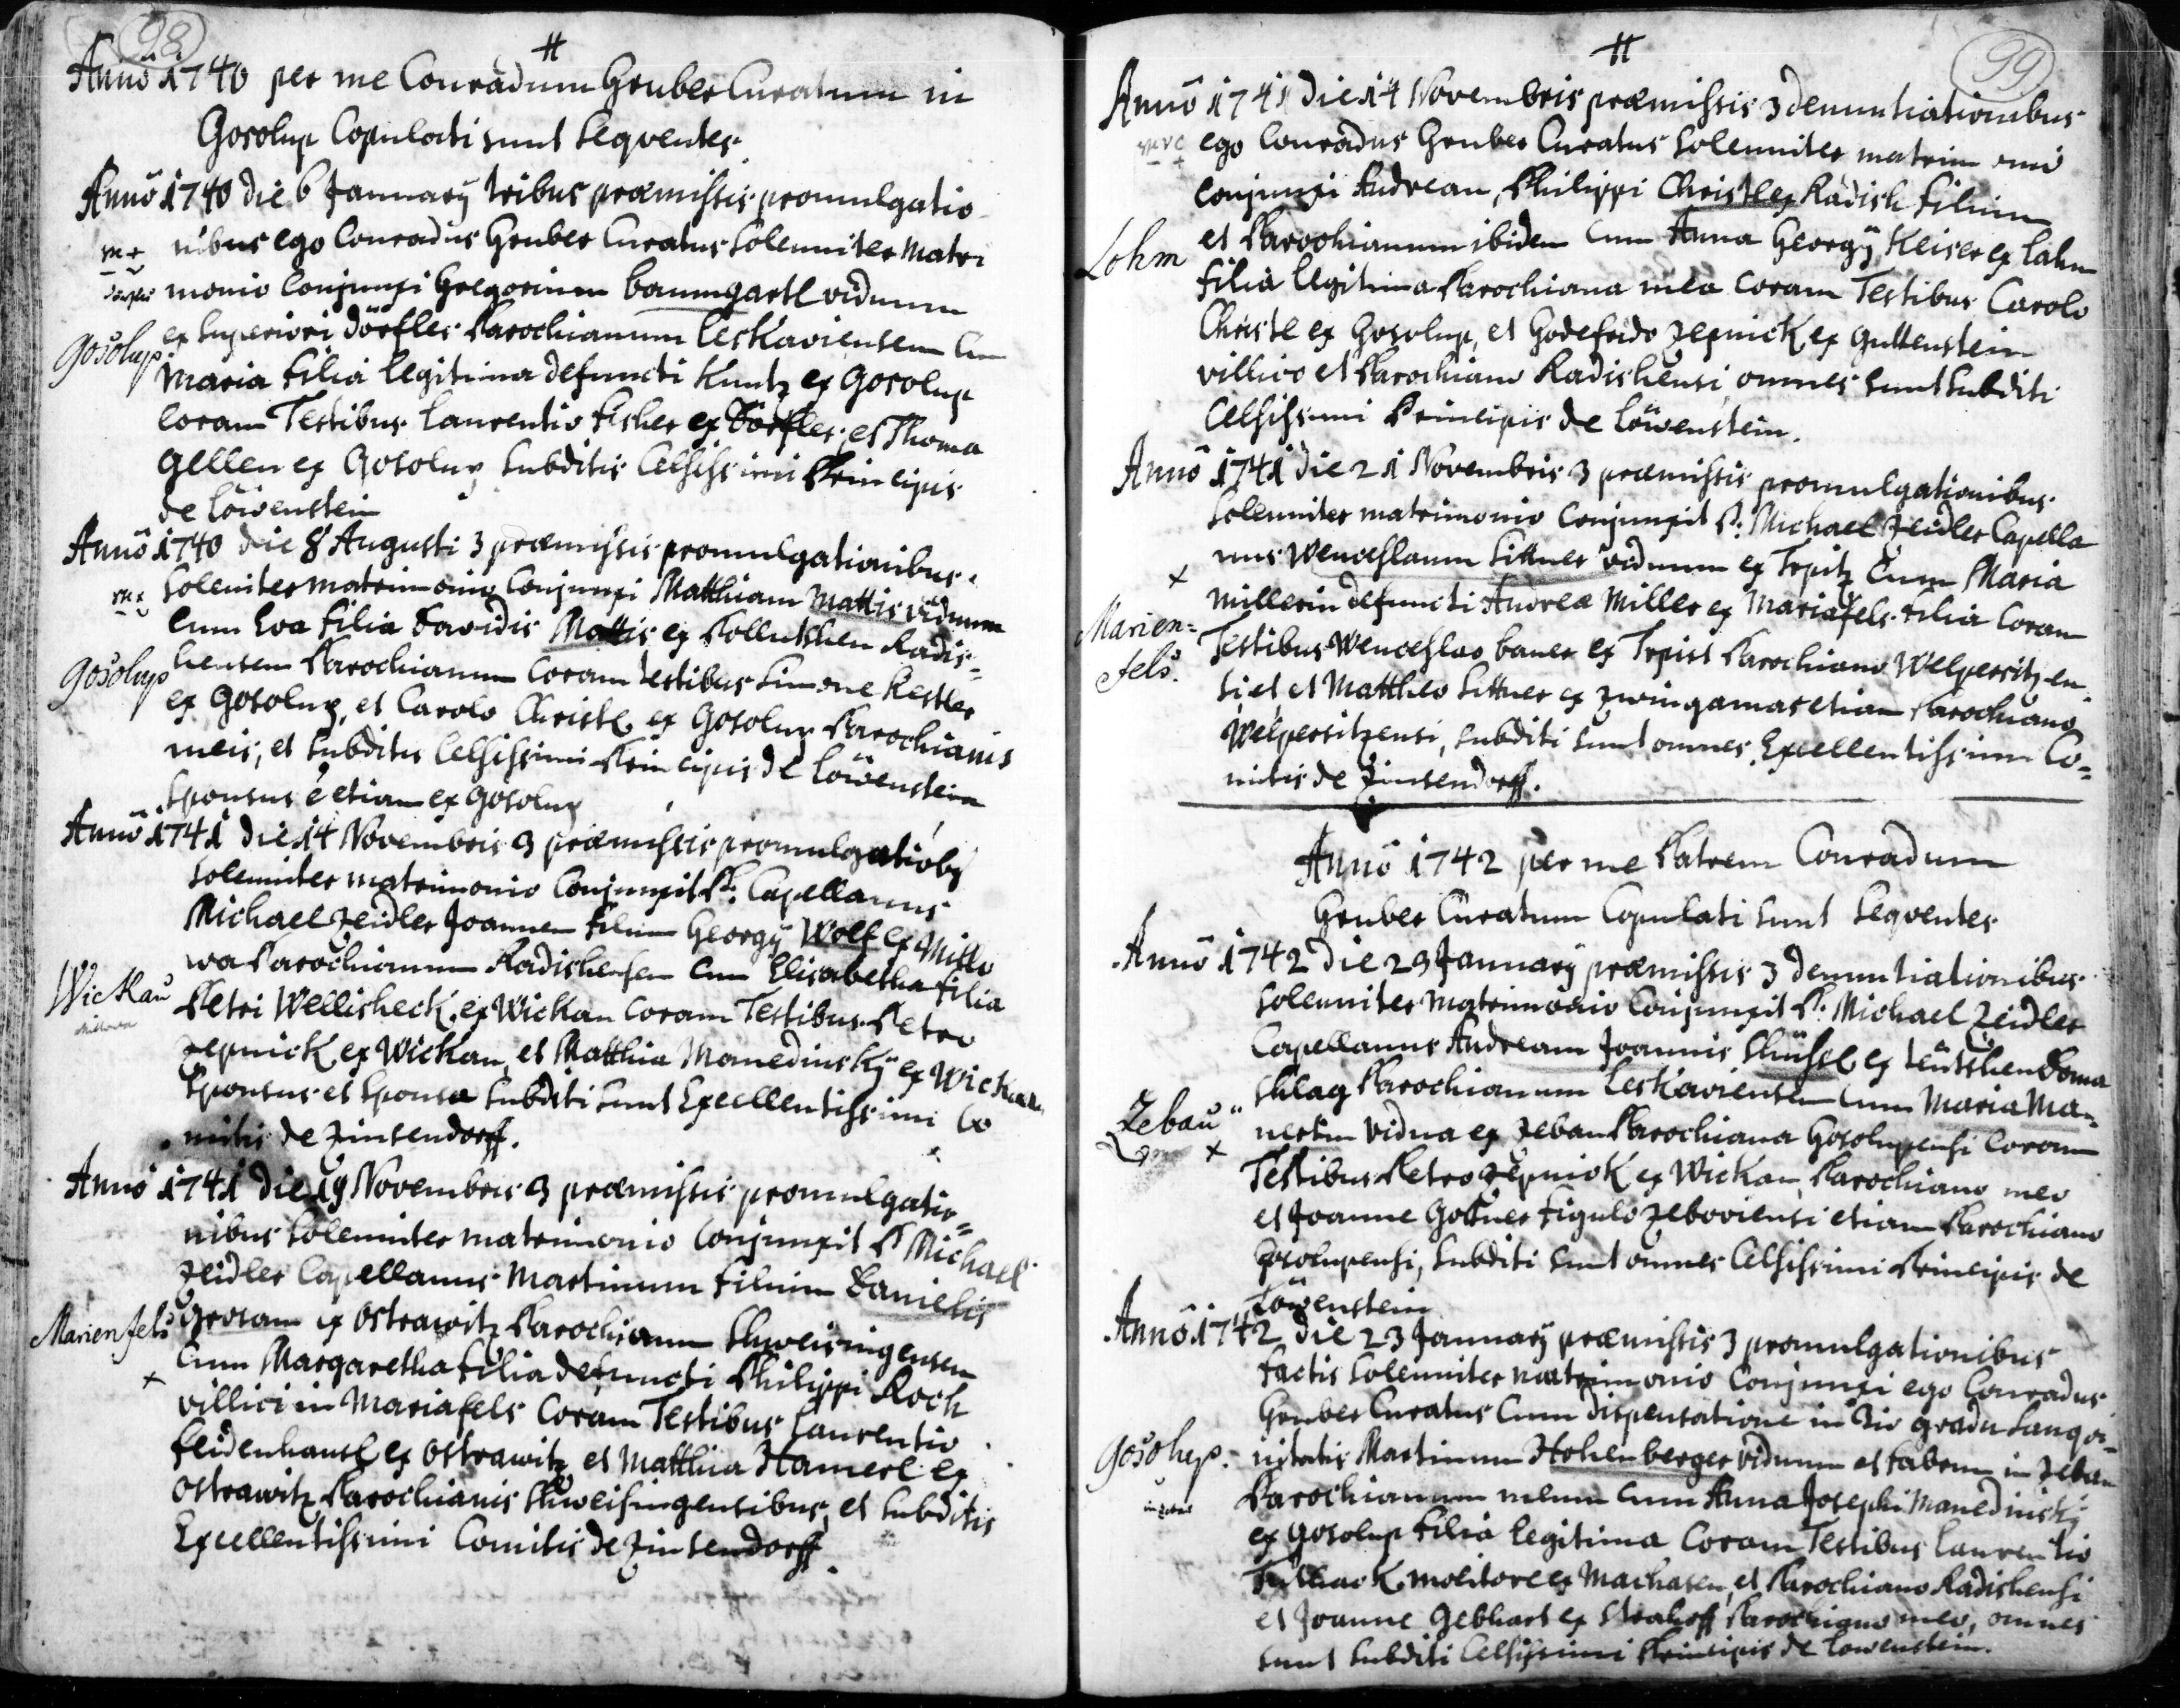 98
#
Annô 1740 per me Conradum Gruber Curatum in
Gosolup Copulati sunt Seqventes.
Annô 1740 die 6 Januarÿ tribus præmissis promulgatio
nibus ego Conradus Gruber Curatus Solemniter Matri
monio Conjunxi Gregorium baumgartl viduum
ex Superiori dörfles Parochianum Leskaviensem Cum
Gosolup.
Maria filia legitima defuncti Kuntz ex Gosolup
Coram Testibus Laurentio fisher ex Dörfles, et Thoma
Gellen ex Gosolup, Subditis Celsissimi Principis
de Löwenstein
Annô 1740 die 8 Augusti 3 præmissis promulgationibus
Solemniter matrimonio Conjunxi Matthiam Mattis viduum
Cum Eva filia Davidis Mattis ex Pollutshen Radis=
Gosolup
hensem Parochianum Coram testibus Simone Kestler
ex Gosolup, et Carolo Christl ex Gosolup Parochianis
meis, et Subditis Celsissimi Principis de Löwenstein
Sponsus é etiam ex Gosolup
Annô 1741 die 14 Novembris 3 præmissis promulgatiobq
Solemniter matrimonio Conjunxit P: Capellanus
Michael Zeidler Joannem filium Georgÿ Wolf ex Millo
wa Parochianum Radishensem Cum Elisabetha filia
Wickau
Millowa
Petri Wellisheck, ex Wickau Coram Testibus Petro
Zepnick ex Wickau, et Matthia Manedinskÿ ex Wickau
Sponsus et Sponsa Subditi sunt Excellentissimi Co
mitis de Zinsendorff.
Annô 1741 die 19 Novembris 3 præmissis promulgatio=
nibus Solemniter matrimonio Conjunxit P Michael
Zeidler Capellanus Martinum filium Danielis
Marienfels
Grosam ex Ostrawitz Parochianum Shweisingensem
Cum Margaretha filia defuncti Philippi Koch
+
villici in Mariafels Coram Testibus Laurentio
feidenhansl ex Ostrawitz et Matthia Hamerl ex
Ostrawitz Parochianis Shweisingensibus, et Subditis
Excellentissimi Comitis de Zinsendorff
99
#
Annô 1741 die 14 Novembris præmissis 3 denuntiationibus
ego Conradus Gruber Curatus Solemniter matrimonio
Conjunxi Andream, Philippi Christl ex Radish filium
Lohm
et Parochianum ibidem Cum Anna Georgÿ Keiser ex Lahm
filia legitima Parochiana mea Coram Testibus Carolo
Christl ex Gosolup, et Godefrido Zepnick ex Guttenstein
villico et Parochiano Radishensi, omnes sunt Subditi
Celsissimi Principis de Löwenstein.
Annô 1741 die 21 Novembris 3 præmissis promulgationibus
Solemniter matrimonio Conjunxit P: Michael Zeidler Capella
nus Wenceslaum Sittner viduum ex Trpitz Cum Maria
+
Marien=
fels.
Millerin defuncti Andreæ Miller ex Mariafels filia Coram
Testibus Wenceslao bauer ex Trpist Parochiano Welperitzen
si, et Mattheo Sittner ex Zwingamas etiam Parochiano
Welpersitzensi, Subditi sunt omnes Excellentissimi Co=
mitis de Zinsendorff.
Annô 1742 per me Patrem Conradum
Gruber Curatum Copulati sunt Seqventes
Annô 1742 die 23 Januarÿ præmissis 3 denuntiationibus
Solemniter matrimonio Conjunxit P: Michael Zeidler
Capellanus Andream Joannis Shüssl ex teütshen Doma
shlag Parochianum Leskaviensem Cum Maria Ma=
Zebau
+
nertin vidua ex Zebau Parochiana Gosolupensi Coram
Testibus Petro Zepnick ex Wickau, Parochiano meo
et Joanne Gottner figulo Zeboviensi etiam Parochiano
Gosolupensi, Subditi sunt omnes Celsissimi Principis de
Löwenstein
Annô 1742 die 23 Januarÿ præmissis 3 promulgationibus
factis Solemniter matrimonio Conjunxi ego Conradus
Gruber Curatus Cum dispensatione in 3io gradu Sangvi=
Gosolup.
in Zebau
nitatis Martinum Hohenberger viduum et fabrum in Zebau
Parochianum meum Cum Anna Josephi Manedinskÿ
ex Gosolup filia legitima Coram Testibus Laurentio
molitore ex Machasen, et Parochiano Radishensi
et Joanne Gebhart ex Strahoff Parochiano meo, omnes
sunt Subditi Celsissimi Principis de Löwenstein.